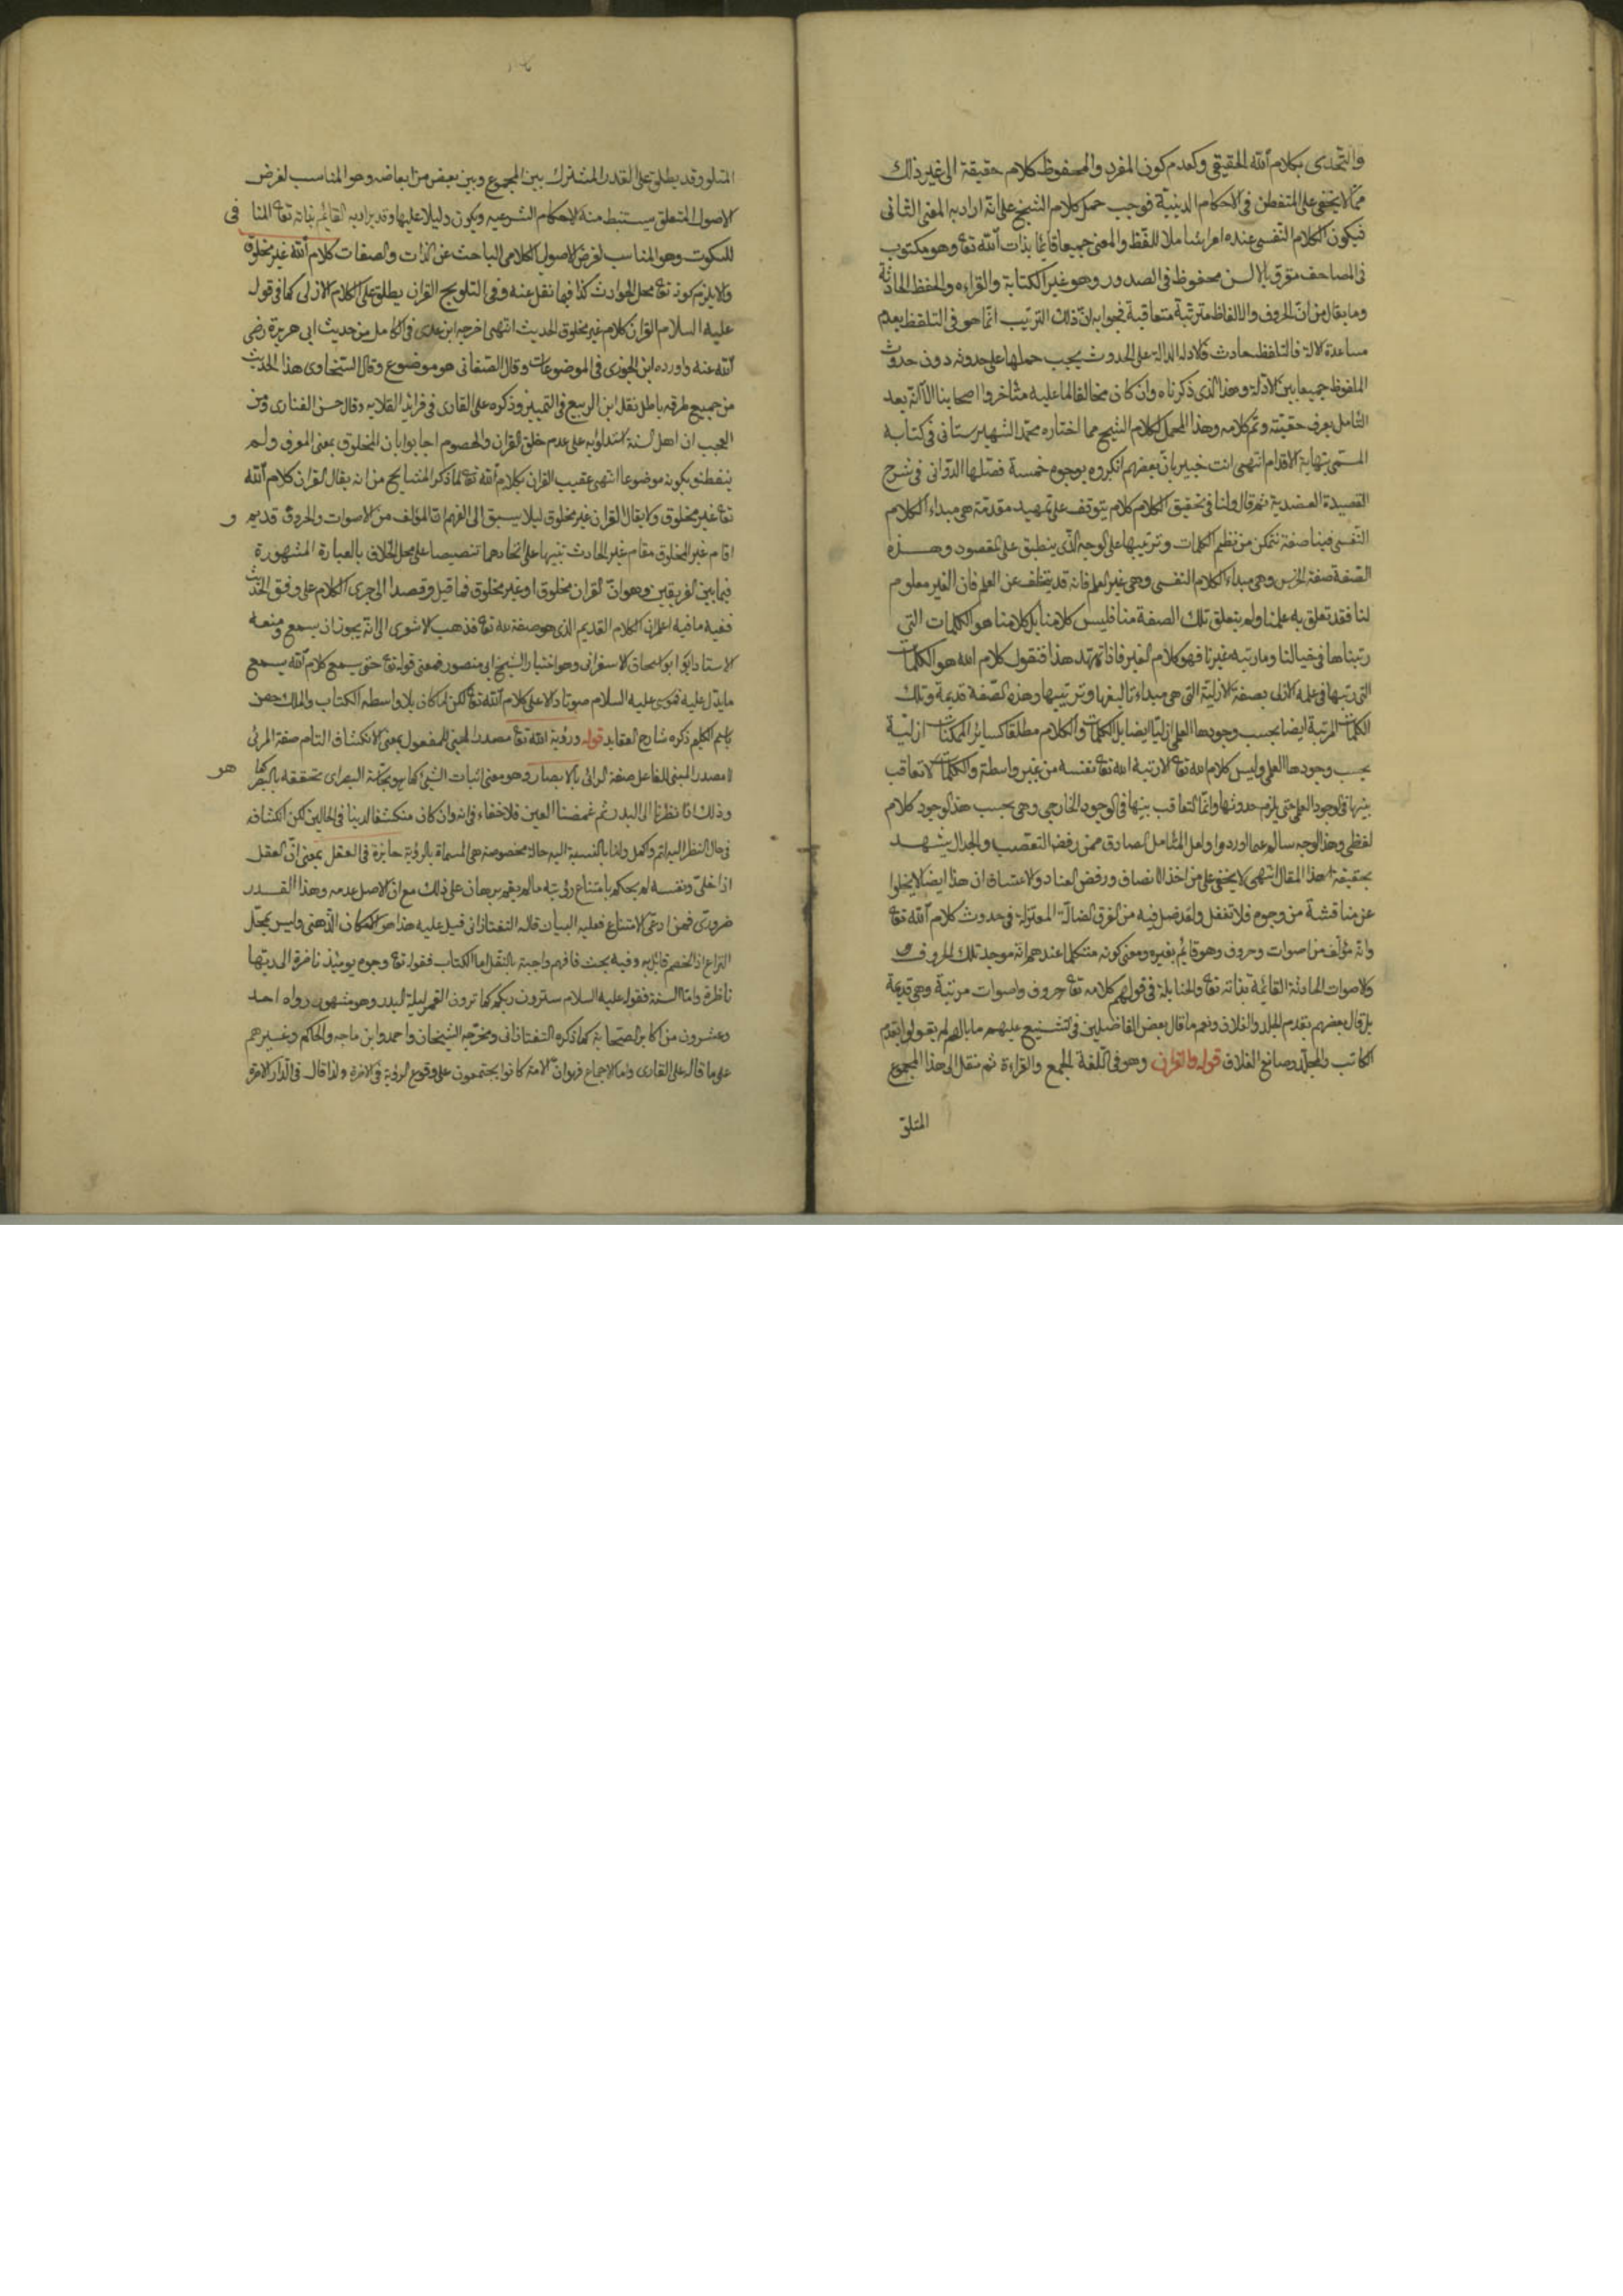 والتحدى بكلام الله الحقيقى وكعدم كون المقرو والمحفوظ كلام حقيقة الى غير ذلك
مما لا يخفى على المتفطن فى الاحكام الدينية فوجب حمل كلام الشيخ على انه اراد به المعنى الثانى
فيكون الكلام النفسى عنده امرا شاملا للفظ والمعنى جميعا قائما بذات الله تع وهو مكتوب
فى المصاحف مقرو بالالسن محفوظ فى الصدور وهو غير الكتابة والقراءه والحفظ الحادثة
وما يقال من ان الحروف والالفاظ مترتبة متعاقبة فجوابه ان ذلك الترتيب انما هو فى التلفظ بعدم
مساعدة الالة فالتلفظ حادث فالادله الدالة على الحدوث يجب حملها على حدوثه دون حدوث
الملفوظ جميعا بين الادلة وهذا الذى ذكرناه وان كان مخالفا لما عليه متاخروا اصحابنا الا انه بعد
التامل يعرف حقيقته وتم كلامه وهذا المحمل لكلام الشيخ مما اختاره محمد الشهيرستانى فى كتابه
المسمى بنهاية الاقدام انتهى انت خبير بان بعضهم انكروه بوجوه خمسة فصلها الدوانى فى شرح
القصيدة العضدية ثم قال ولنا فى تحقيق الكلام كلام يتوقف على تمهيد مقدمة هى مبداء الكلام
النفسى فينا صفة نتمكن من نظم الكلمات وترتيبها على الوجه الذى ينطبق على المقصود وهذه
الصفة صفة الخرس وهى مبداء الكلام النفسى وهى غير العلم فانه قد يتخلف عن العلم فان الغير معلوم
لنا فقد تعلق به علمنا ولم يتعلق تلك الصفة منا فليس كلامنا بل كلامنا هو الكلمات التى
رتبناها فى خيالنا وما رتبه غيرنا فهو كلام الغير فاذا تمهد هذا فنقول كلام الله هو الكلمات
التى رتبها فى علمه الازلى بصفته الازلية التى هى مبداء تاليفها وترتيبها وهذه الصفة قديمة وتلك
الكلمات المرتبة ايضا بحسب وجودها العلمى ازليا ايضا بل الكلمات والكلام مطلقا كسائر الممكنات ازلية
بحسب وجودها العلمى وليس كلام الله تع الا رتبه الله تع نفسه من غير واسطة والكلمات لا تعاقب
بينها فى الوجود العلمى حتى يلزم حدوثها وانما التعاقب بينها فى الوجود الخارجى وهى بحسب هذا الوجود كلام
لفظى وهذا الوجه سالم عما اوردوا ولعل المتامل الصادق ممن رفض التعصب والجدال يشهد
بحقيقة هذا المقال انتهى لا يخفى على من اخذ الانصاف ورفض العناد والاعتساف ان هذا ايضا لا يخلوا
عن مناقشة من وجوه فلا تغفل ولقد ضل فيه من الفرق الضالة المعتزلة فى حدوث كلام الله تع
وانه مؤلف من اصوات وحروف وهو قائم بغيره ومعنى كونه متكلما عندهم انه موجد تلك الحروف
والاصوات الحادثة القائمة بذاته تع والحنابلة فى قولهم كلامه تع حروف واصوات مرتبة وهى قديمة
بل قال بعضهم بقدم الجلد والغلاف ونعم ما قال بعض الفاضلين فى تشنيع عليهم ما بالهم لم يقولوا بقدم
الكاتب والمجلد وصانع الغلاف قوله والقران وهو فى اللغة الجمع والقراءة ثم نقل الى هذا المجموع
المتلو
المتلو وقد يطلق على القدر المشترك بين المجموع وبين بعض من ابعاضه وهو المناسب لغرض
الاصول المتعلق يستنبط منه الاحكام الشرعيه ويكون دليلا عليها وقد يراد به القائم بذاته تع المنافى
للسكوت وهو المناسب لغرض الاصول الكلامى الباحث عن الذات والصفات كلام الله غير مخلوق
والا يلزم كونه تع محل الحوادث كذا فيما نقل عنه وفى التلويح القران يطلق على الكلام الازلى كما فى قوله
عليه السلام القران كلام غير مخلوق الحديث انتهى اخرجه ابن عدى فى الكامل من حديث ابى هريرة رضى
الله عنه واورده ابن الجوزى فى الموضوعات وقال الصغانى هو موضوع وقال السخاوى هذا الحديث
من جميع طرقه باطل نقل ابن الربيع فى التمييز وذكره على القارى فى فرائد القلايد وقال حسن الفنارى ومن
العجب ان اهل السنة استدلوا به على عدم خلق القران والخصوم اجابوا بان المخلوق بمعنى المعرف ولم
يتفطنو بكونه موضوعا انتهى عقيب القران بكلام الله تع لما ذكر المشايخ من انه يقال القران كلام الله
تع غير مخلوق ولا يقال القران غير مخلوق ليلا يسبق الى الفهم ان المؤلف من الاصوات والحروف قديم و
اقام غير المخلوق مقام غير الحادث تنبيها على اتحادهما تنصيصا على محل الخلاف بالعبارة المشهورة
فيما بين الفريقين وهو ان القران مخلوق او غير مخلوق فما قيل وقصدا الى جرى الكلام على وفق الحديث
ففيه ما فيه اعلم ان الكلام القديم الذى هو صفة لله تع فذهب الاشعرى الى انه يجوز ان يسمع ومنعه
الاستاد ابو اسحاق الاسفراينى وهو اختيار الشيخ ابى منصور فمعنى قوله تع حتى يسمع كلام الله يسمع
ما يدل عليه فموسى عليه السلام صوتا دالا على كلام الله تع لكن لما كان بلا واسطه الكتاب والملك خص
باسم الكليم ذكره شارح العقايد قوله ورؤية الله تع مصدر المبنى للمفعول بمعنى الانكشاف التام صفة المرئى
لا مصدر المبنى للفاعل صفة الرائى بالابصار وهو معنى اثبات الشئ كما هو بحاسة البصر اى تحققه بالبصر كما هو
وذلك انا نظرنا الى البدر ثم غمضنا العين فلا خفاء فى انه وان كان منكشفا لدينا فى الحالين لكن انكشافه
فى حال النظر اليه اتم واكمل ولنا بالنسبة اليه حالة مخصوصة هى المسماة بالرؤية جايزة فى العقل بمعنى ان العقل
اذا خلى ونفسه لم يحكم بامتناع رؤيته ما لم يقم برهان على ذلك مع ان الاصل عدمه وهذا القدر
ضرورى فمن ادعى الامتناع فعليه البيان قاله التفتازانى قيل عليه هذا هو الامكان الذهنى وليس بمحل
النزاع اذ الخصم قائل به وفيه بحث فافهم واجبة بالنقل اما الكتاب فقوله تع وجوه يومئذ ناضرة الى ربها
ناظرة واما السنة فقوله عليه السلام سترون ربكم كما ترون القمر ليلة البدر وهو مشهور رواه احد
وعشرون من اكابر الصحابة كما ذكره التفتازانى ومخرجه الشيخان واحمد وابن ماجه والحاكم وغيرهم
على ما قاله على القارى واما الاجماع فهو ان الامة كانوا يجتمعون على وقوع الرؤية فى الاخرة ولذا قال فى الدار الاخرة